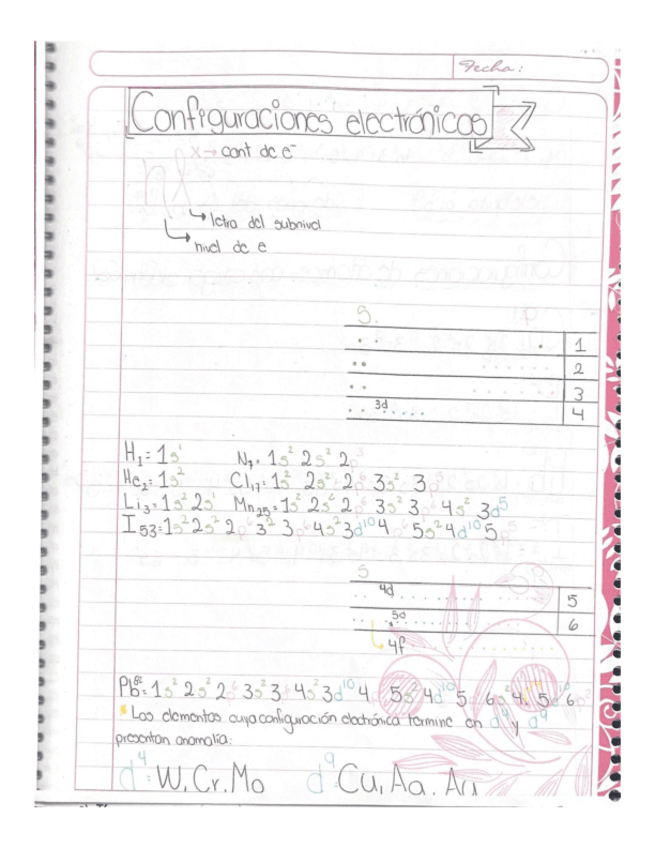 Fecha:
Configuraciones electrónicas
x→ cant de e⁻
nl
letra del subnivel
nivel de e
S.
1
2
3
3d 4
H₁: 1s¹ N₇: 1s² 2s² 2p³
He₂: 1s² Cl₁₇: 1s² 2s² 2p⁶ 3s² 3p⁵
Li₃: 1s² 2s¹ Mn₂₅: 1s² 2s² 2p⁶ 3s² 3p⁶ 4s² 3d⁵
I₅₃: 1s² 2s² 2p⁶ 3s² 3p⁶ 4s² 3d¹⁰ 4p⁶ 5s² 4d¹⁰ 5p⁵
S
4d 5
5d 6
4f
Pb⁸²: 1s² 2s² 2p⁶ 3s² 3p⁶ 4s² 3d¹⁰ 4p 5s² 4d¹⁰ 5p 6s² 4f 5d¹⁰ 6p²
* Los elementos cuya configuración electrónica termine en y
presentan anomalía:
d⁴: W, Cr, Mo d⁹: Cu, Aa, Au